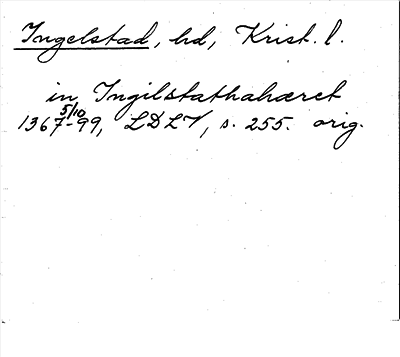 Ingelstad, hd, Krist. l.
in Ingilstathahæret
5/10
1367-99, LDLV, s. 255. orig.